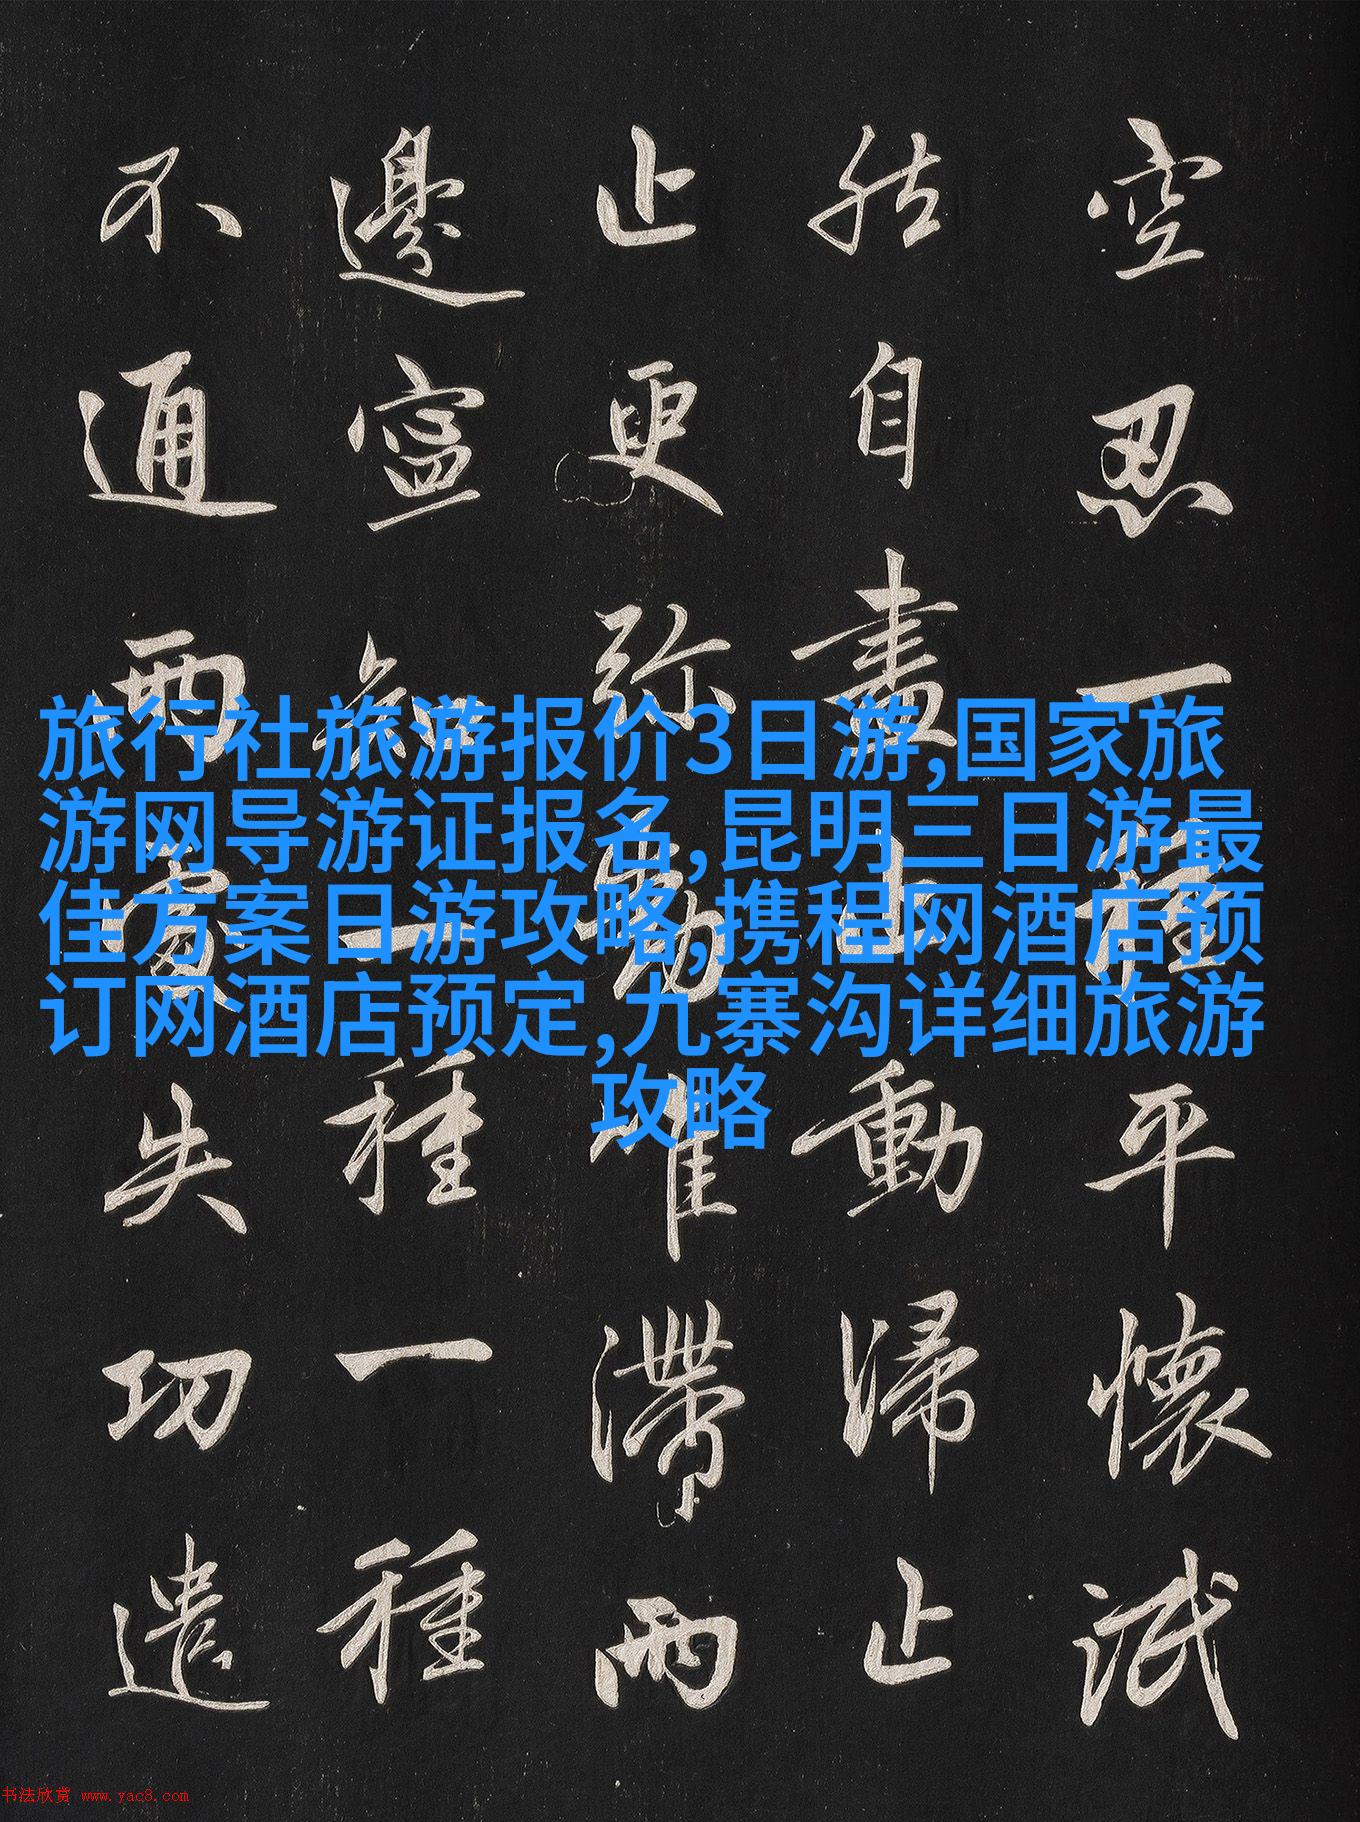 空忍一種平懷泯
然自盡止動歸止
止更彌動唯滯兩
邊寧知一種一種
不通兩處失功遣
旅行社旅游报价3日游,国家旅
游网导游证报名,昆明三日游最
佳方案日游攻略,携程网酒店预
订网酒店预定,九寨沟详细旅游
攻略
书法欣赏 www.yac8.com